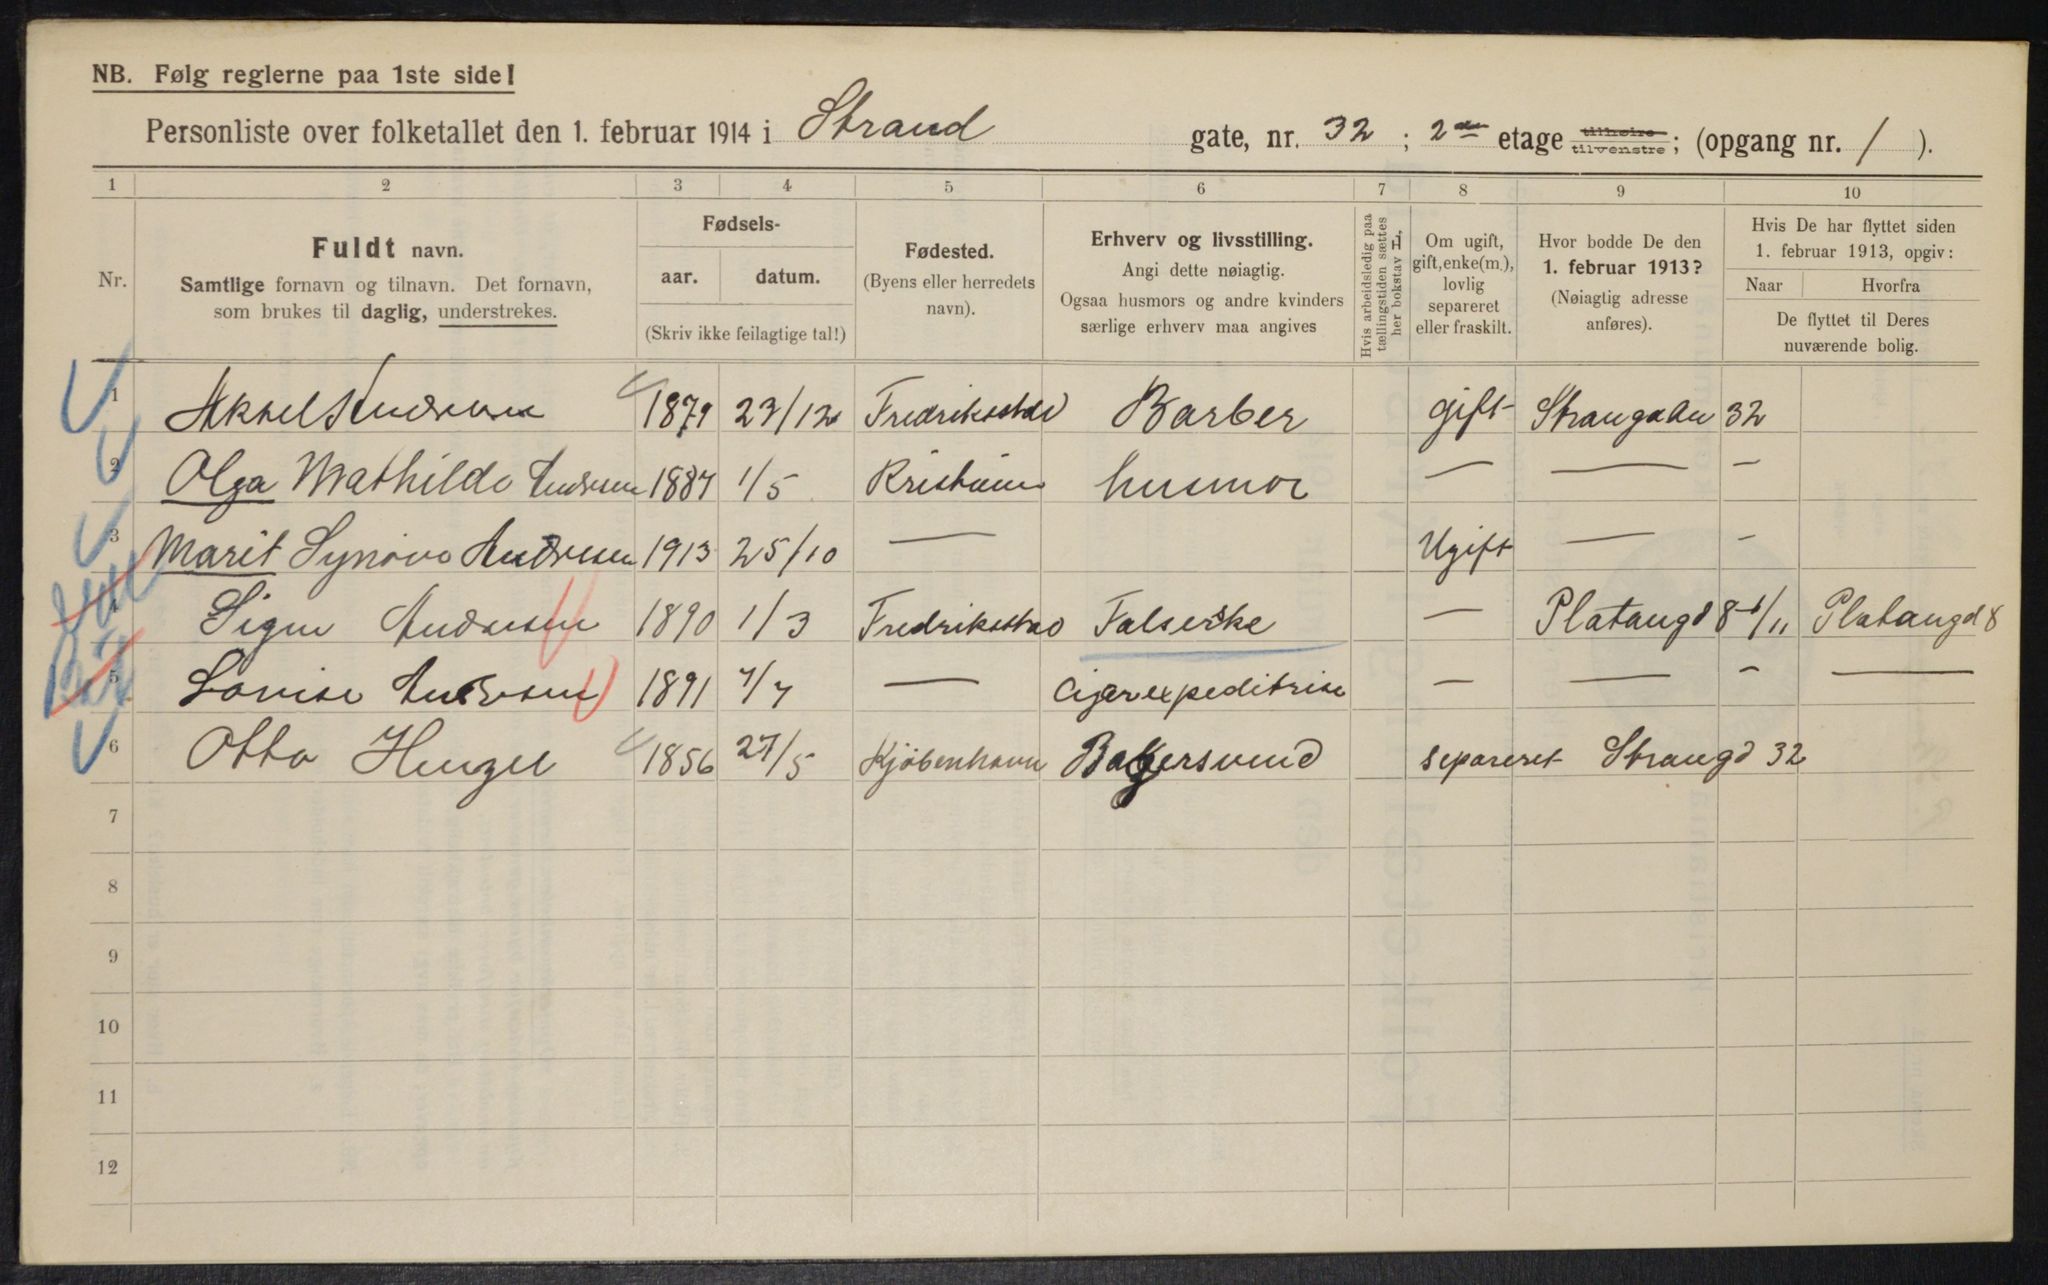 NB. Følg reglerne paa 1ste side!
Personliste over folketallet den 1. februar 1914 i Strand gate, nr. 32 ; 2den etage tilhøire tilvenstre ; (opgang nr. / ).
1 2 3 4 5 6 7 8 9 10
Nr.
Fuldt navn.
Samtlige fornavn og tilnavn. Det fornavn,
som brukes til daglig, understrekes.
Fødsels-
aar. datum.
(Skriv ikke feilagtige tal!)
Fødested.
(Byens eller herredets
navn).
Erhverv og livsstilling.
Angi dette nøiagtig.
Ogsaa husmors og andre kvinders
særlige erhverv maa angives
Hvis arbeidsledig paa
tællingstiden sættes
her bokstav L.
Om ugift,
gift, enke(m.),
lovlig
separeret
eller fraskilt.
Hvor bodde De den
1. februar 1913?
(Nøiagtig adresse
anføres).
Hvis De har flyttet siden
1. februar 1913, opgiv:
Naar Hvorfra
De flyttet til Deres
nuværende bolig.
1 Aksel Andresen 1879 23/12 Fredriksstad Barber gift Strangaden 32
2 Olga Mathilde Andresen 1887 1/5 Kristiania husmor — — –
3 Marit Synøve Andresen 1913 25/10 — Ugift — –
4 Signe Andresen 1890 1/3 Fredriksstad — Platangd 8 1/11 Platangd 8
5 Lovise Andresen 1891 7/7 — Cigarexpeditrise — — – —
6 Otto Henzel 1856 27/5 Kjøbenhavn Bagersvend separeret Strangd 32
7
8
9
10
11
12